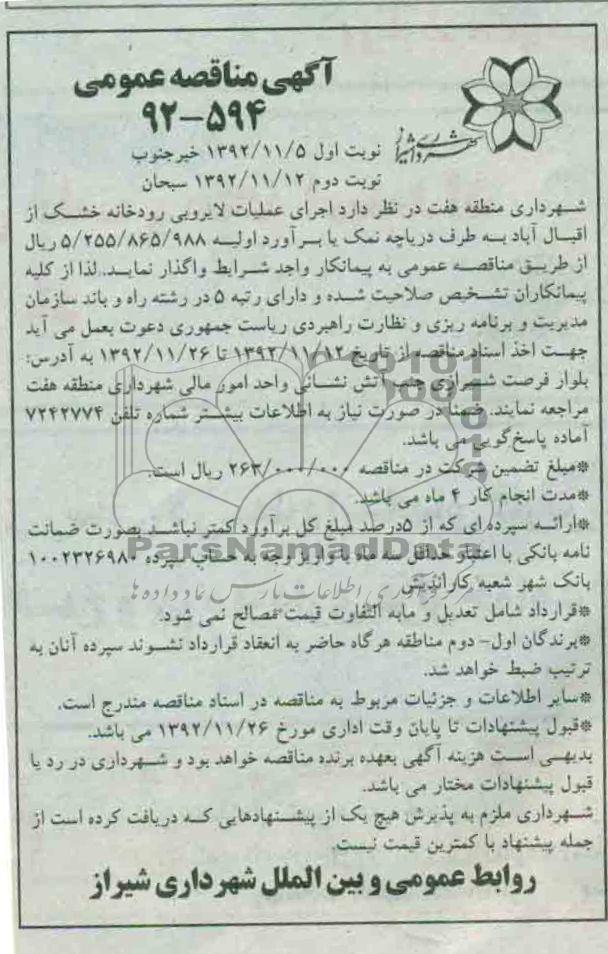 آگهی مناقصه عمومی
۹۲-۵۹۴
شهرداری شیراز
نوبت اول ۱۳۹۲/۱۱/۵ خبرجنوب
نوبت دوم ۱۳۹۲/۱۱/۱۲ سبحان
شهرداری منطقه هفت در نظر دارد اجرای عملیات لایروبی رودخانه خشک از
اقبال آباد به طرف دریاچه نمک با برآورد اولیه ۵/۲۵۵/۸۶۵/۹۸۸ ریال
از طریق مناقصه عمومی به پیمانکار واجد شرایط واگذار نماید. لذا از کلیه
پیمانکاران تشخیص صلاحیت شده و دارای رتبه ۵ در رشته راه و باند سازمان
مدیریت و برنامه ریزی و نظارت راهبردی ریاست جمهوری دعوت بعمل می آید
جهت اخذ اسناد مناقصه از تاریخ ۱۳۹۲/۱۱/۱۲ تا ۱۳۹۲/۱۱/۲۶ به آدرس:
بلوار فرصت شیرازی جنب آتش نشانی واحد امور مالی شهرداری منطقه هفت
مراجعه نمایند. ضمناً در صورت نیاز به اطلاعات بیشتر شماره تلفن ۷۲۴۲۷۷۴
آماده پاسخ‌گویی می باشد.
*مبلغ تضمین شرکت در مناقصه ۲۶۳/۰۰۰/۰۰۰ ریال است.
*مدت انجام کار ۴ ماه می باشد.
*ارائه سپرده ای که از ۵درصد مبلغ کل برآورد کمتر نباشد بصورت ضمانت
نامه بانکی با اعتبار حداقل سه ماه یا واریز وجه به حساب سپرده ۱۰۰۲۳۲۶۹۸۰
بانک شهر شعبه کارآندیش
ParsNamadData
*قرارداد شامل تعدیل و مابه التفاوت قیمت مصالح نمی شود.
*برندگان اول- دوم مناطقه هرگاه حاضر به انعقاد قرارداد نشوند سپرده آنان به
ترتیب ضبط خواهد شد.
*سایر اطلاعات و جزئیات مربوط به مناقصه در اسناد مناقصه مندرج است.
*قبول پیشنهادات تا پایان وقت اداری مورخ ۱۳۹۲/۱۱/۲۶ می باشد.
بدیهی است هزینه آگهی بعهده برنده مناقصه خواهد بود و شهرداری در رد یا
قبول پیشنهادات مختار می باشد.
شهرداری ملزم به پذیرش هیچ یک از پیشنهادهایی که دریافت کرده است از
جمله پیشنهاد با کمترین قیمت نیست.
روابط عمومی و بین الملل شهرداری شیراز